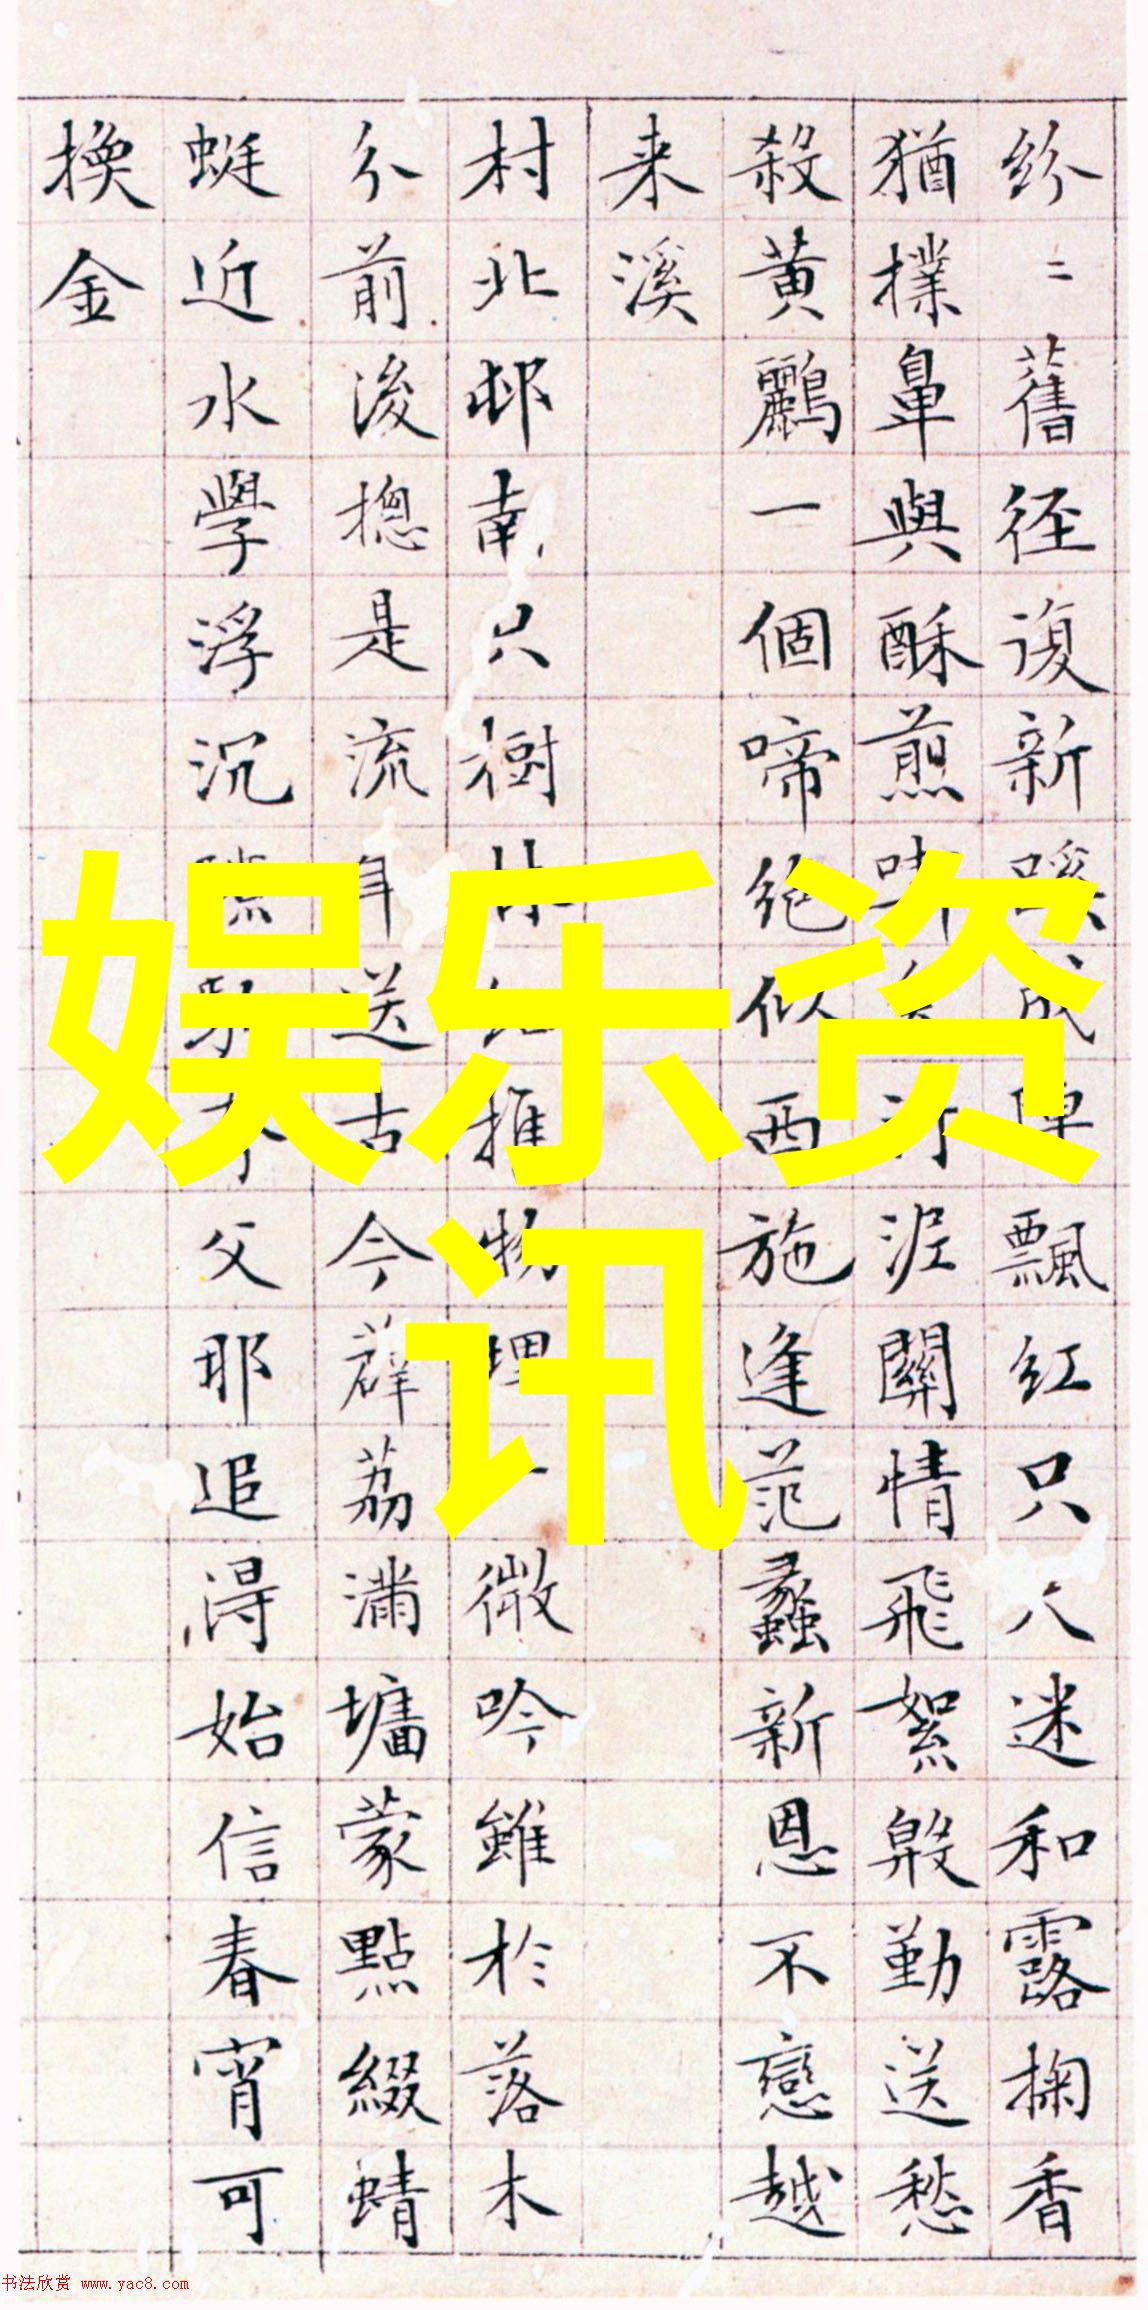 紛〻舊徑復新蹊成陣飄紅只迷和露掬香
猶撲鼻與酥煎行泥關情飛絮勤送愁
殺黃鸝一個啼絕似西施逢范蠡新恩不戀越
来溪
村北邨南只樹推物理微吟雖於落木
前後揔是流送古今薜荔滿墻蒙點綴蜻
蜓近水學浮沉父耶追得始信春宵可
換金
娱乐资
讯
书法欣赏 www.yac8.com